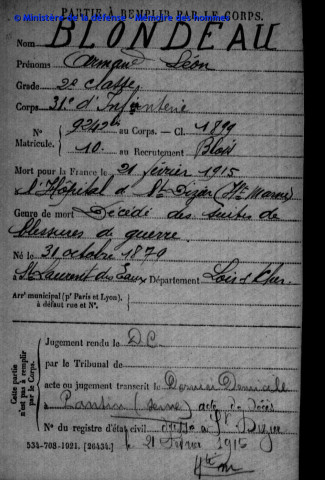 © Ministère de la défense - Mémoire des hommes
PARTIE À REMPLIR PAR LE CORPS.
Nom BLONDEAU
Prénoms Armand Léon
Grade 2e classe
Corps 31e d'Infanterie
N° 9242 au Corps. — Cl. 1899
Matricule. 10 au Recrutement Blois
Mort pour la France le 21 février 1915
à l'Hôpital à St Dizier (Hte Marne)
Genre de mort Décédé des suites de
blessures de guerre
Né le 31 octobre 1879
à St Laurent des Eaux Département Loir & Cher
Arrt municipal (pr Paris et Lyon),
à défaut rue et N°.
Cette partie n'est pas à remplir par le Corps.
Jugement rendu le D.C.
par le Tribunal de
acte ou jugement transcrit le Dernier Domicile
à Pantin (Seine) acte de décès
N° du registre d'état civil St Dizier
534-708-1921. [26434.] le 21 Février 1915
Hte M